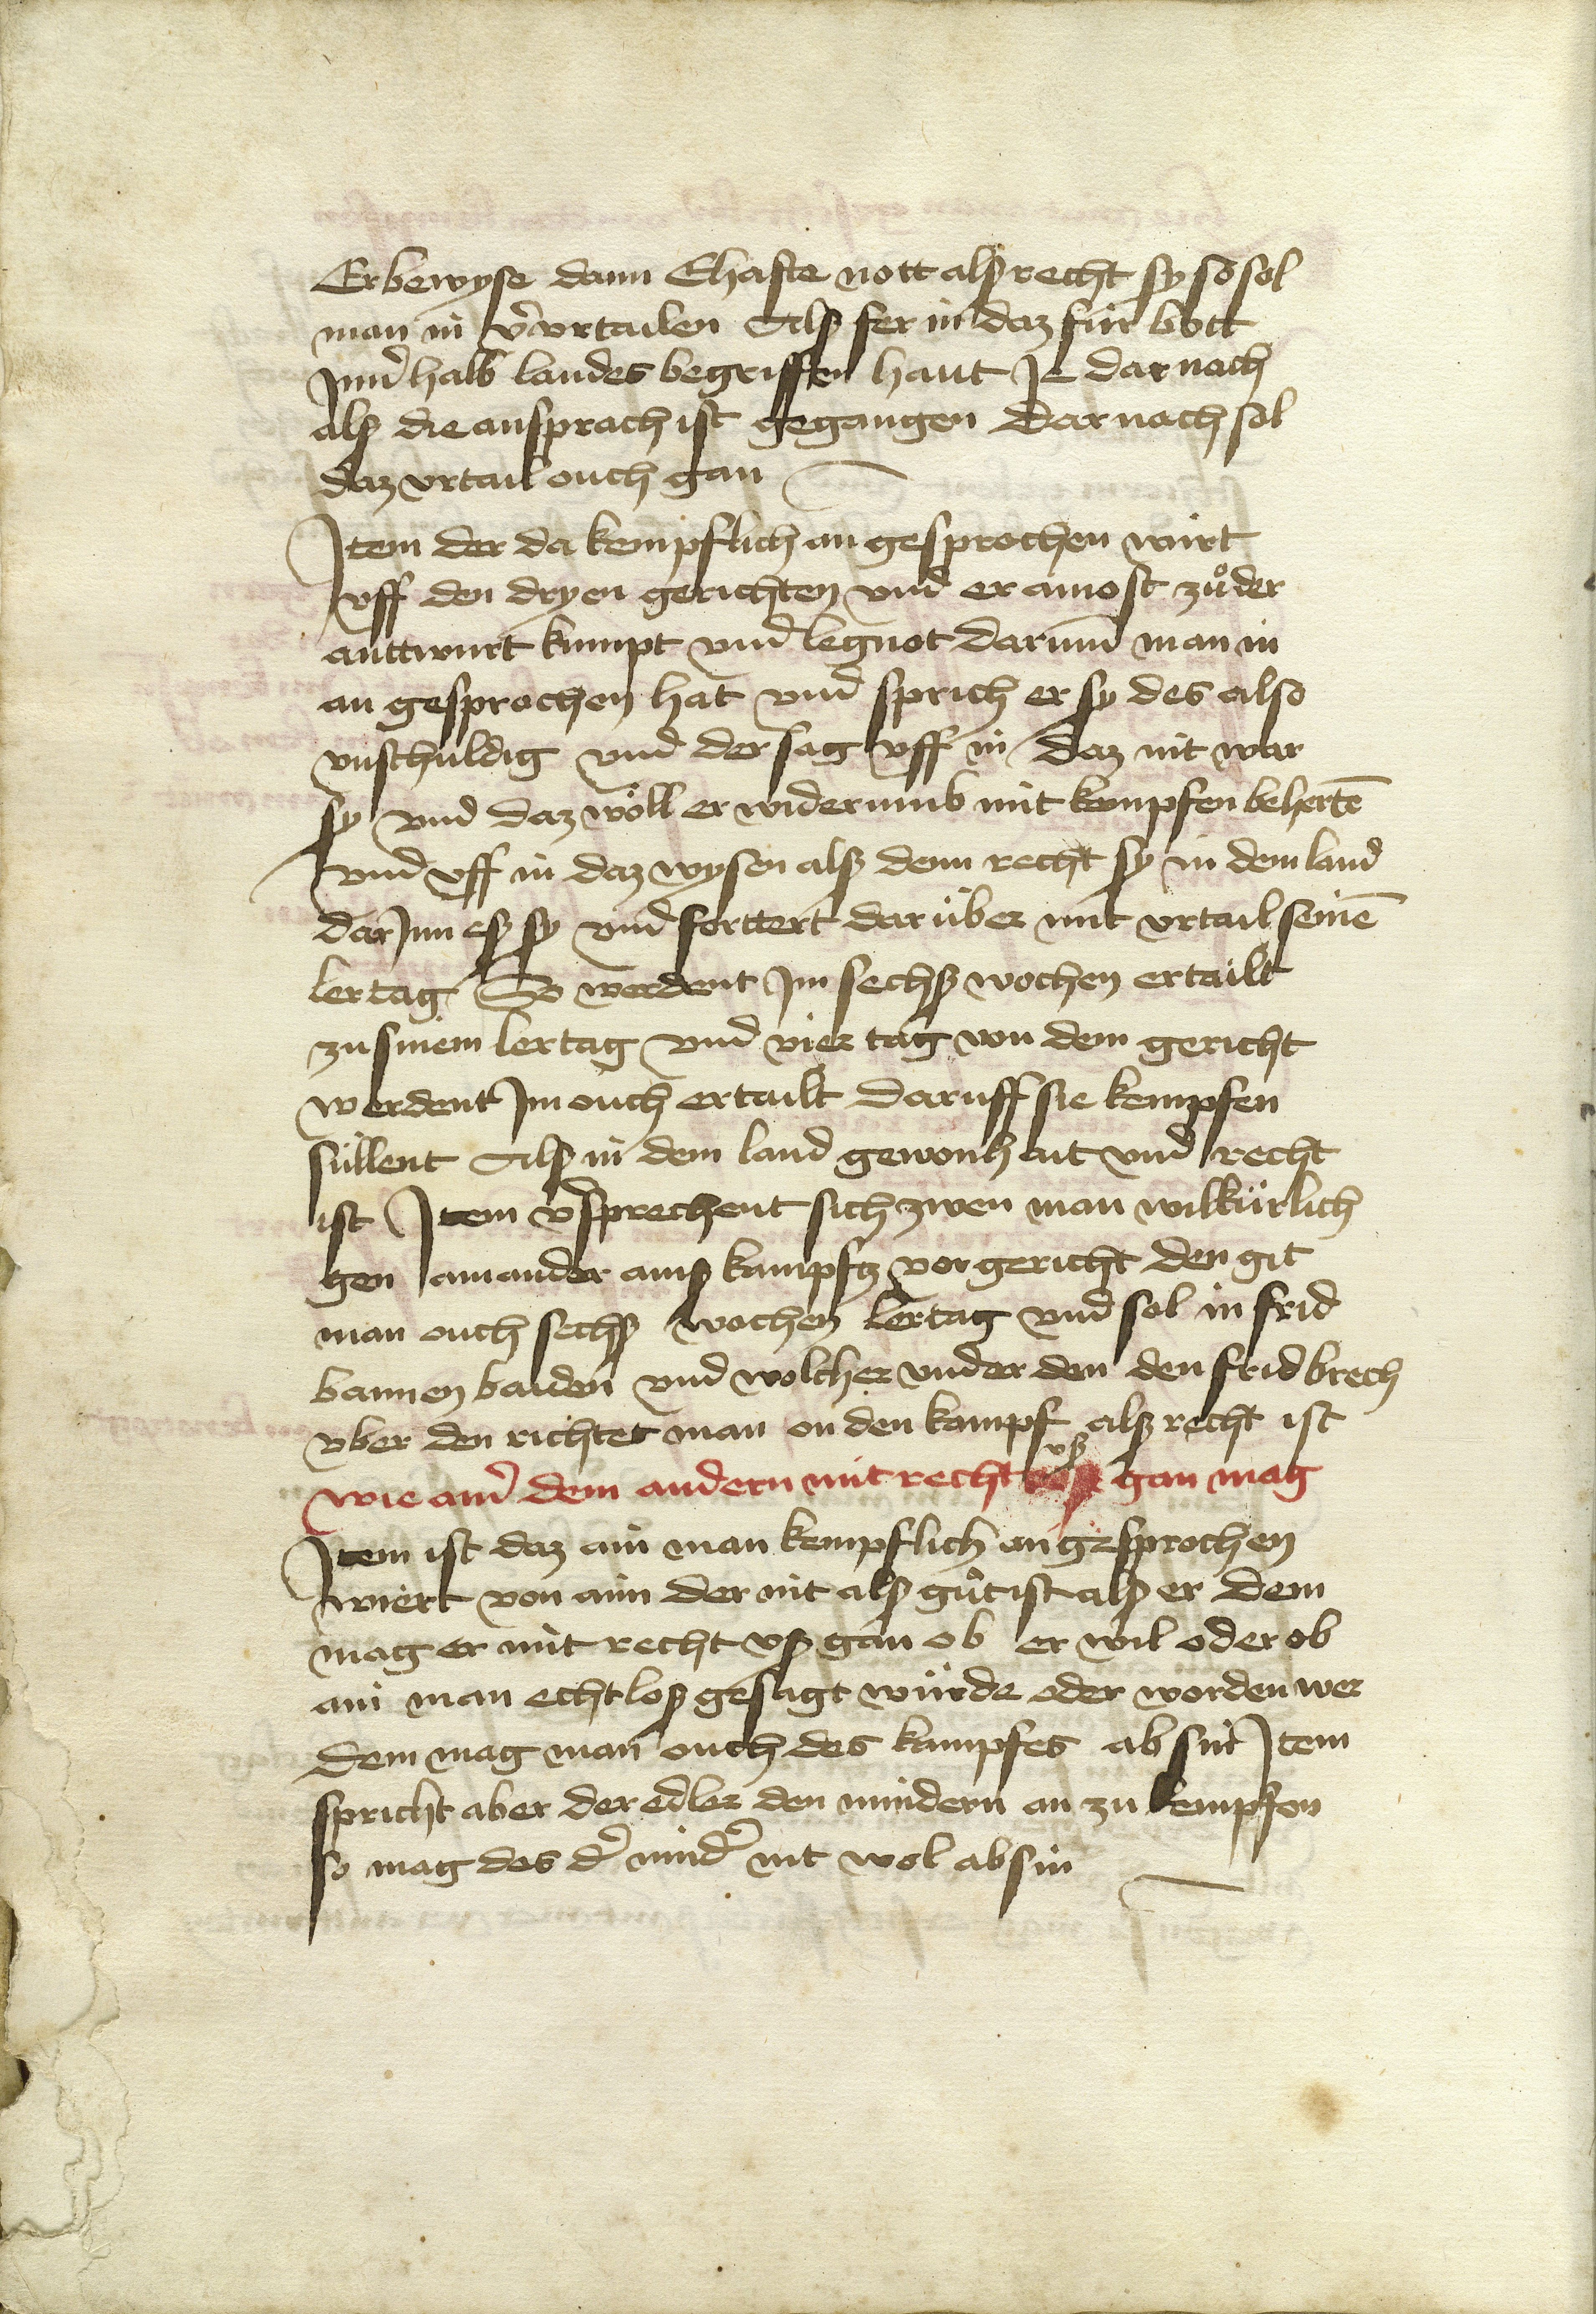 Er bewyse dann Ehafte nott alß recht sy so sol
man in v̾vrtailen Alß fer in daz für bott
Jnnd̾halb landes begriffen haut Je dar nach
alß die ansprach ist gegangen Dar nach sol
daz vrtail ouch gan
Jtem der da kempflich an gesprochen würt
vff den dryen gerichten vnd er ainost zuͦ der
anttwurt kumpt vnd legnot darumb man in
an gesprochen hat vnd sprich er sy des also
vnschuldig vnd der sag vff in daz nit war
sy vnd daz wöll er widerumb mit kempfen behertē
vnd vff in daz wysen alß denn recht sy in dem land
dar Jnn eß sy vnd forttert dar über mit vrtail seinē
lertag So werdent Jm sechß wochen ertailt
zu sinem lertag vnd vier tag von dem gericht
werdent Jm ouch ertailt Daruff sie kempfen
süllent Alß in dem land gewonhait vnd recht
ist Jtem v̾sprechent sich zwen man wilkürlich
gen ainander ainß kampfz vor gericht den git
man ouch sechß wochen lertag vnd sol in frid
bannen baiden vnd wolcher vnder den den frid brech
vber den richtet man on den kampf alß recht ist
wie aind̾ dem andern mit recht vß gan mag
Jtem ist daz ain man kempflich an gesprochen
wiert von aim der nit alß guͦt ist alß er dem
mag er mit recht vß gan ob er wil oder ob
ain man echtloß gesagt würde oder worden wer
dem mag man ouch des kampfes ab sin Jtem
spricht aber der edler den mindern an zu kempfen
so mag des d̾ mind̾ nit wol ab sin